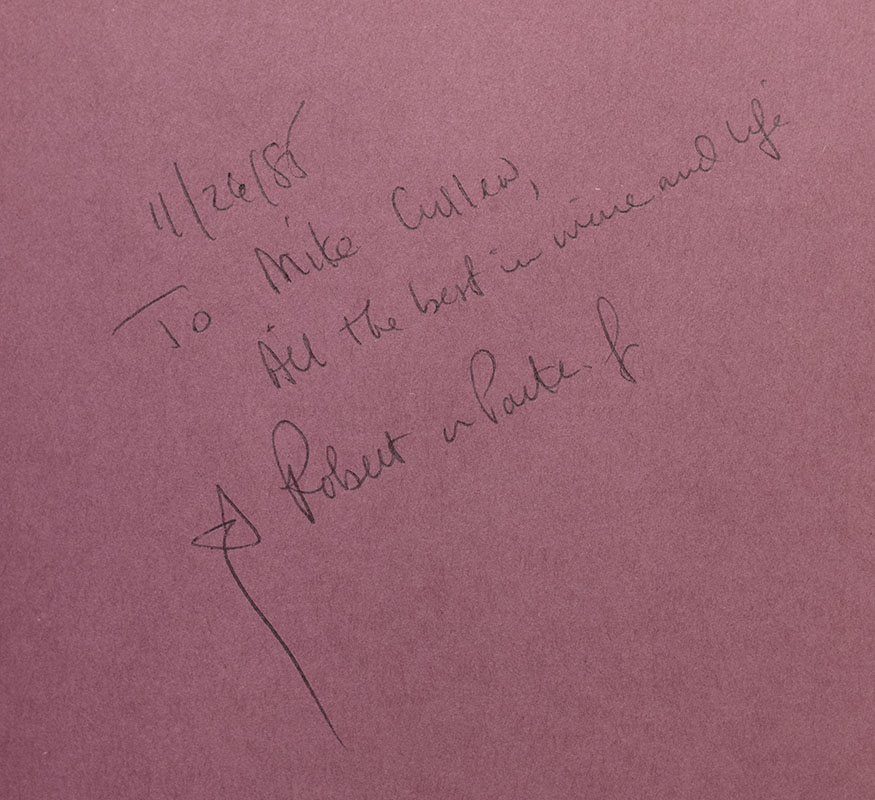 11/26/85
To Mike Cullen,
All the best in wine and life
Robert M Parker Jr